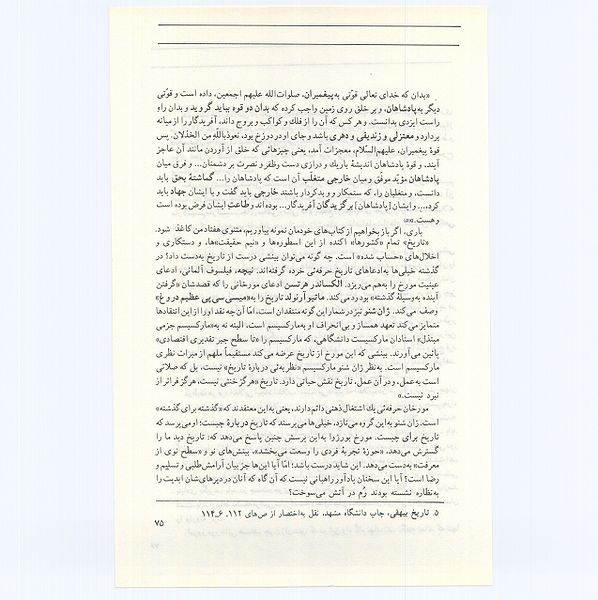 «بدان که خدای تعالی قوّتی به پیغمبران، صلوات‌الله علیهم اجمعین، داده است و قوّتی
دیگر به پادشاهان، و بر خلق روی زمین واجب کرده که بدان دو قوه بباید گروید و بدان راه
راست ایزدی بدانست. و هر کس که آن را از فلك و کواکب و بروج داند، آفریدگار را از میانه
بردارد و معتزلی و زندیقی و دهری باشد و جای او در دوزخ بود، نعوذبالله من الخذلان. پس
قوهٔ پیغمبران، علیهم‌السّلام، معجزات آمد، یعنی چیزهائی که خلق از آوردن مانند آن عاجز
آیند، و قوهٔ پادشاهان اندیشهٔ باریك و درازی دست و ظفر و نصرت بر دشمنان... و فرق میان
پادشاهان مؤیّد موفّق و میان خارجی متغلّب آن است که پادشاهان را... گماشتهٔ بحق باید
دانست، و متغلبان را، که ستمکار و بدکردار باشند خارجی باید گفت و با ایشان جهاد باید
کرد... و ایشان [پادشاهان] برگزیدگان آفریدگار... بوده‌اند و طاعت ایشان فرض بوده است
و هست.»۵
باری. اگر باز بخواهیم از کتاب‌های خودمان نمونه بیاوریم، مثنوی هفتاد من کاغذ شود.
«تاریخ» تمام «کشورها» آکنده از این اسطوره‌ها و «نیم حقیقت»ها، و دستکاری و
اخلال‌های «حساب شده» است. چه گونه می‌توان بینشی درست از تاریخ به‌دست داد؛ در
گذشته خیلی‌ها به ادعاهای تاریخ حرفه‌ئی خرده گرفته‌اند. نیچه، فیلسوف آلمانی، ادعای
عینیت مورخ را به‌هم می‌ریزد. الکساندر هرتسن ادعای مورخانی را که قصدشان «گرفتن
آینده به وسیلهٔ گذشته» بود رد می‌کند. ماتیو آرنولد تاریخ را به «میسی سی پی عظیم دروغ»
وصف می‌کند. ژان شنو نیز در شمار این گونه منتقدان است، امّا آن چه نقد او را از این انتقادها
متمایز می‌کند تعهد همساز و بی‌انحراف او به مارکسیسم است، البته نه به «مارکسیسم جزمی
مبتذل» استادان مارکسیست دانشگاهی، که مارکسیسم را «تا سطح جبر تقدیری اقتصادی»
پائین می‌آورند. بینشی که این مورخ از تاریخ عرضه می‌کند مستقیماً ملهم از میراث نظری
مارکسیسم است. به نظر ژان شنو مارکسیسم «نظریه‌ئی دربارهٔ تاریخ» نیست، بل که صلائی
است به‌عمل، و در آن عمل، تاریخ نقش حیاتی دارد. تاریخ «هرگز خنثی نیست، هرگز فراتر از
نبرد نیست.»
مورخان حرفه‌ئی یك اشتغال ذهنی دائم دارند، یعنی به این معتقدند که «گذشته برای گذشته»
است. ژان شنو به این گروه می‌تازد. خیلی‌ها می‌پرسند که تاریخ دربارهٔ چیست؛ او می‌پرسد که
تاریخ برای چیست. مورخ بورژوا به این پرسش چنین پاسخ می‌دهد که: تاریخ دید ما را
گسترش می‌دهد، «حوزهٔ تجربهٔ فردی را وسعت می‌بخشد»، بینش‌های نو و «سطح نوی از
معرفت» به‌دست می‌دهد. این شاید درست باشد؛ امّا آیا این‌ها جز بیان آرامش‌طلبی و تسلیم و
رضا است؟ آیا این سخنان یادآور راهبانی نیست که آن گاه که آنان در دیرهای‌شان ابدیت را
به نظاره نشسته بودند رُم در آتش می‌سوخت؟
۵. تاریخ بیهقی، چاپ دانشگاه مشهد، نقل به‌اختصار از ص‌های ۱۱۲، ۶ـ۱۱۴
۷۵